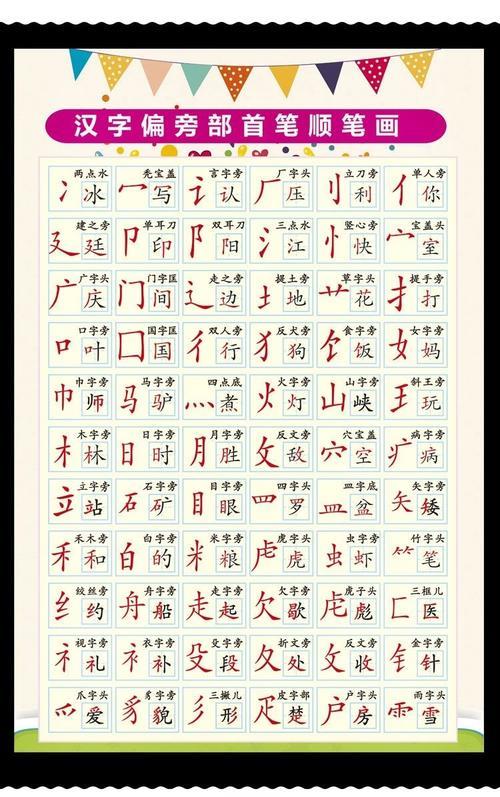 汉字偏旁部首笔顺笔画
两点水 秃宝盖 言字旁 厂字头 立刀旁 单人旁
冫冰 冖写 讠认 厂压 刂利 亻你
建之旁 单耳刀 双耳刀 三点水 竖心旁 宝盖头
廴廷 卩印 阝阳 氵江 忄快 宀室
广字头 门字匡 走之旁 提土旁 草字头 提手旁
广庆 门间 辶边 土地 艹花 扌打
口字旁 国字匡 双人旁 反犬旁 食字旁 女字旁
口叶 囗国 彳行 犭狗 饣饭 女妈
巾字旁 马字旁 四点底 火字旁 山字旁 斜王旁
巾师 马驴 灬煮 火灯 山峡 王玩
木字旁 日字旁 月字旁 反文旁 穴宝盖 病字旁
木林 日时 月胜 攵敌 穴空 疒病
立字旁 石字旁 目字旁 四字头 皿字底 矢字旁
立站 石矿 目眼 罒罗 皿盆 矢矮
禾木旁 白字旁 米字旁 虎字头 虫字旁 竹字头
禾和 白的 米粮 虍虎 虫虾 ⺮笔
绞丝旁 舟字旁 走字旁 欠字旁 虎子头 三框儿
纟约 舟船 走起 欠歇 虍彪 匚医
视字旁 衣字旁 殳字旁 折文旁 反文旁 金字旁
礻礼 衤补 殳段 夂处 攵收 钅针
爪字头 豸字旁 三撇儿 皮字部 户字头 雨字头
爫爱 豸貌 彡形 疋楚 户房 雨雪